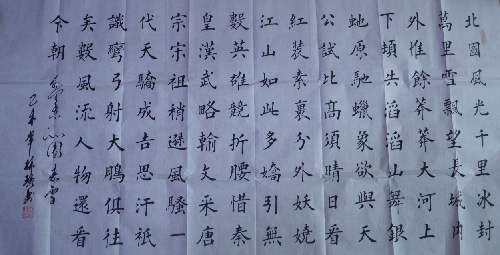 北國風光千里冰封
萬里雪飄望長城內
外惟餘莽莽大河上
下頓失滔滔山舞銀
虵原馳蠟象欲與天
公試比高須晴日看
紅裝素裹分外妖嬈
江山如此多嬌引無
數英雄競折腰惜秦
皇漢武略輸文采唐
宗宋祖稍遜風騷一
代天驕成吉思汗祇
識彎弓射大鵰俱往
矣數風流人物還看
今朝
沁園春雪